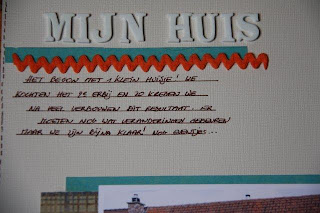 MIJN HUIS
HET BEGON MET 1 KLEIN HUISJE! WE
KOCHTEN HET 2E ERBIJ EN ZO KREGEN WE
NA VEEL VERBOUWEN DIT RESULTAAT. ER
MOETEN NOG WAT VERANDERINGEN GEBEUREN
MAAR WE ZIJN BIJNA KLAAR! NOG EVENTJES...